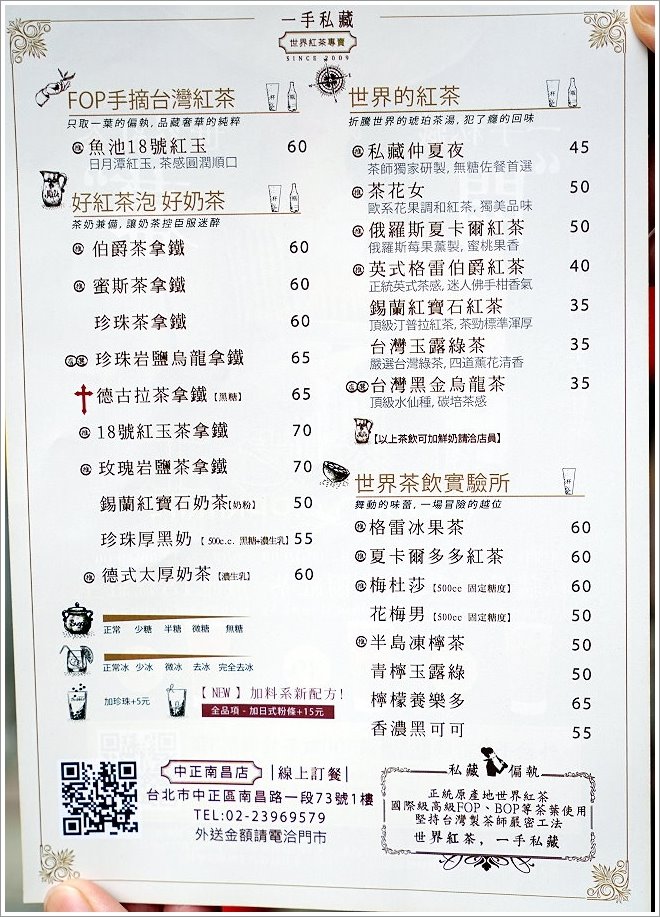 一手私藏
世界紅茶專賣
SINCE 2009
FOP手摘台灣紅茶
杯 瓶
只取一葉的偏執,品藏奢華的純粹
推 魚池18號紅玉 60
日月潭紅玉,茶感圓潤順口
好紅茶泡 好奶茶
杯 瓶
茶奶兼備,讓奶茶控臣服迷醉
推 伯爵茶拿鐵 60
推 蜜斯茶拿鐵 60
珍珠茶拿鐵 60
珍珠岩鹽烏龍拿鐵 65
德古拉茶拿鐵【黑糖】 65
推 18號紅玉茶拿鐵 70
推 玫瑰岩鹽茶拿鐵 70
錫蘭紅寶石奶茶【奶粉】 50
珍珠厚黑奶【500c.c. 黑糖+濃生乳】 55
推 德式太厚奶茶【濃生乳】 60
正常 少糖 半糖 微糖 無糖
正常冰 少冰 微冰 去冰 完全去冰
加珍珠+5元
【NEW】加料系新配方!
全品項 - 加日式粉條+15元
世界的紅茶
杯 瓶
折騰世界的琥珀茶湯,犯了癮的回味
推 私藏仲夏夜 45
茶師獨家研製,無糖佐餐首選
推 茶花女 50
歐系花果調和紅茶,獨美品味
推 俄羅斯夏卡爾紅茶 50
俄羅斯莓果薰製,蜜桃果香
推 英式格雷伯爵紅茶 40
正統英式茶感,迷人佛手柑香氣
錫蘭紅寶石紅茶 35
頂級汀普拉紅茶,茶勁標準渾厚
台灣玉露綠茶 35
嚴選台灣綠茶,四道薰花清香
台灣黑金烏龍茶 35
頂級水仙種,碳培茶感
【以上茶飲可加鮮奶請洽店員】
世界茶飲實驗所
杯
舞動的味蕾,一場冒險的越位
推 格雷冰果茶 60
推 夏卡爾多多紅茶 60
推 梅杜莎【500cc 固定糖度】 60
花梅男【500cc 固定糖度】 50
推 半島凍檸茶 50
青檸玉露綠 50
檸檬養樂多 65
香濃黑可可 55
中正南昌店 |線上訂餐|
台北市中正區南昌路一段73號1樓
TEL:02-23969579
外送金額請電洽門市
私藏 偏執
正統原產地世界紅茶
國際級高級FOP、BOP等茶葉使用
堅持台灣製茶師嚴密工法
世界紅茶,一手私藏